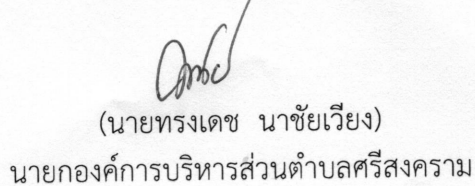 (นายทรงเดช นาชัยเวียง)
นายกองค์การบริหารส่วนตำบลศรีสงคราม